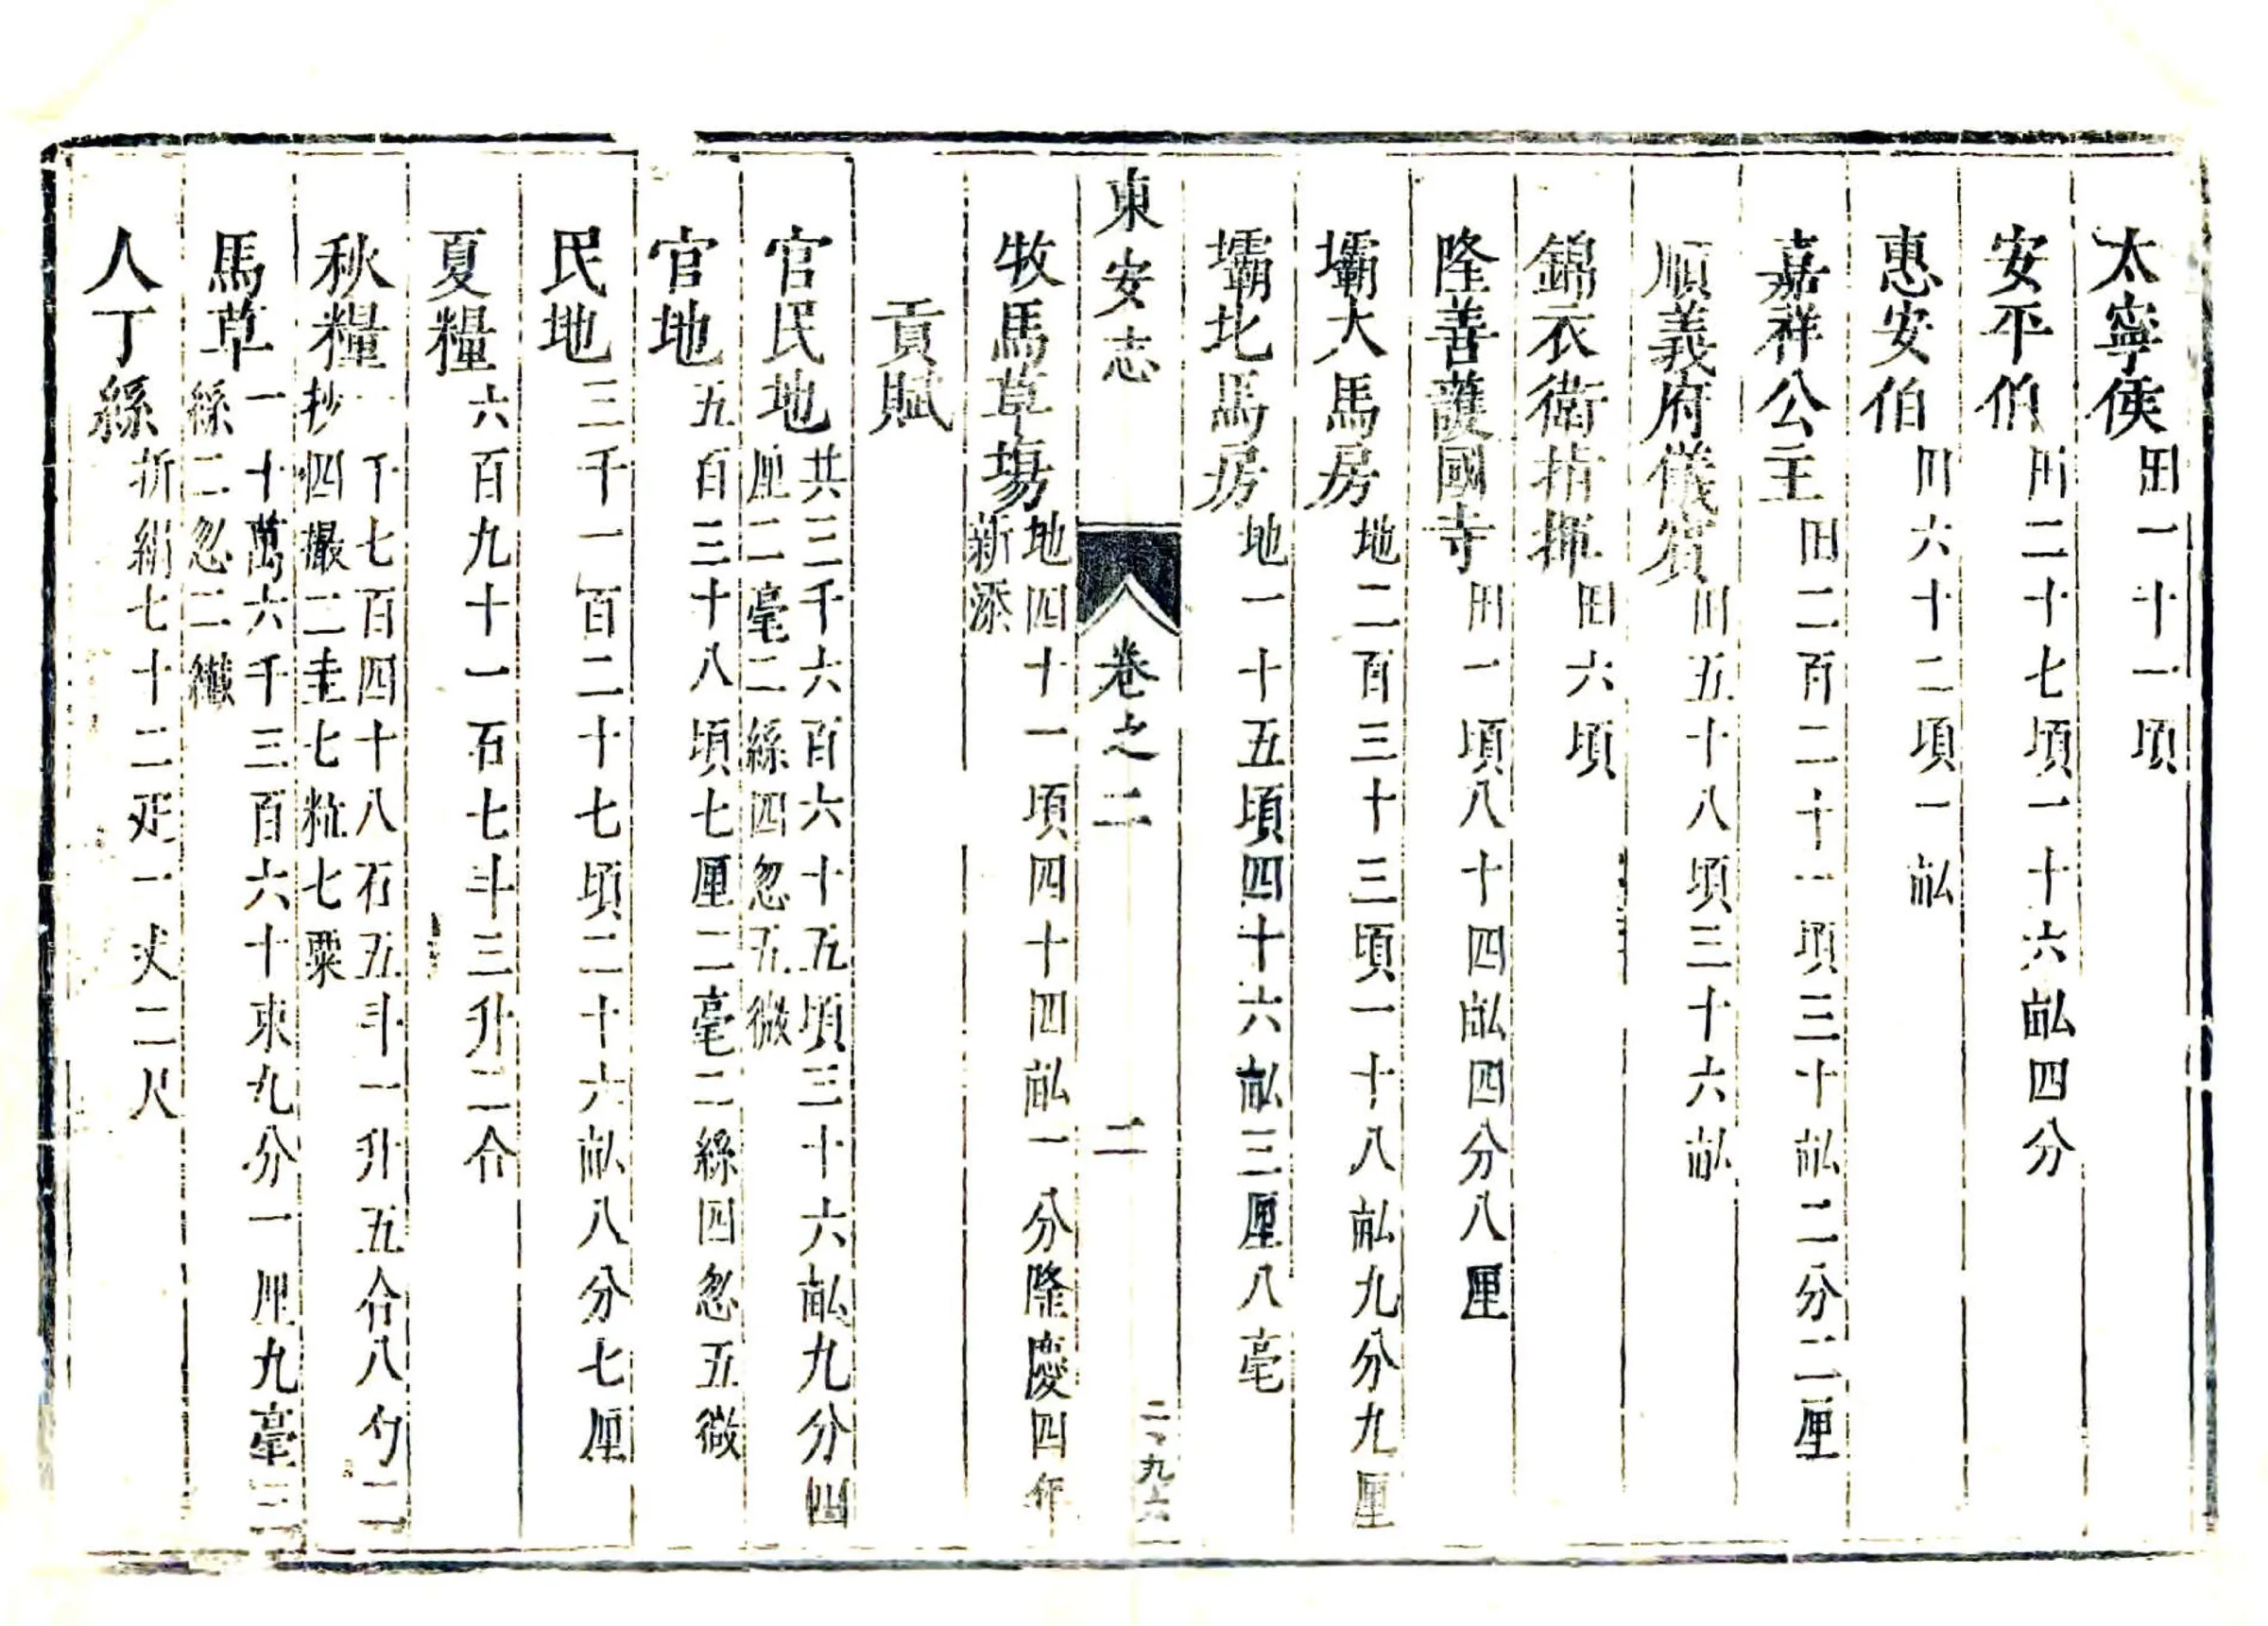 太寧侯田一十一頃
安平伯田二十七頃一十六畝四分
惠安伯田六十二頃一畝
嘉祥公主田二百二十一頃三十畝二分二厘
順義府儀賓田五十八頃三十六畝
錦衣衛指揮田六頃
隆善護國寺田一頃八十四畝四分八厘
壩大馬房地二百三十三頃一十八畝九分九厘
壩北馬房地一十五頃四十六畝三厘八毫
牧馬草塲地四十一頃四十四畝一分隆慶四年
新添
東安志 卷之二 二
二、九六
貢賦
官民地共三千六百六十五頃三十六畝九分四
厘二毫二絲四忽五微
官地五百三十八頃七厘二毫二絲四忽五微
民地三千一百二十七頃二十六畝八分七厘
夏糧六百九十一石七斗三升二合
秋糧一千七百四十八石五斗一升五合八勺二
抄四撮二圭七粃七粟
馬草一十萬六千三百六十束九分一厘九毫三
絲二忽二纎
人丁絲折絹七十二疋一丈二尺